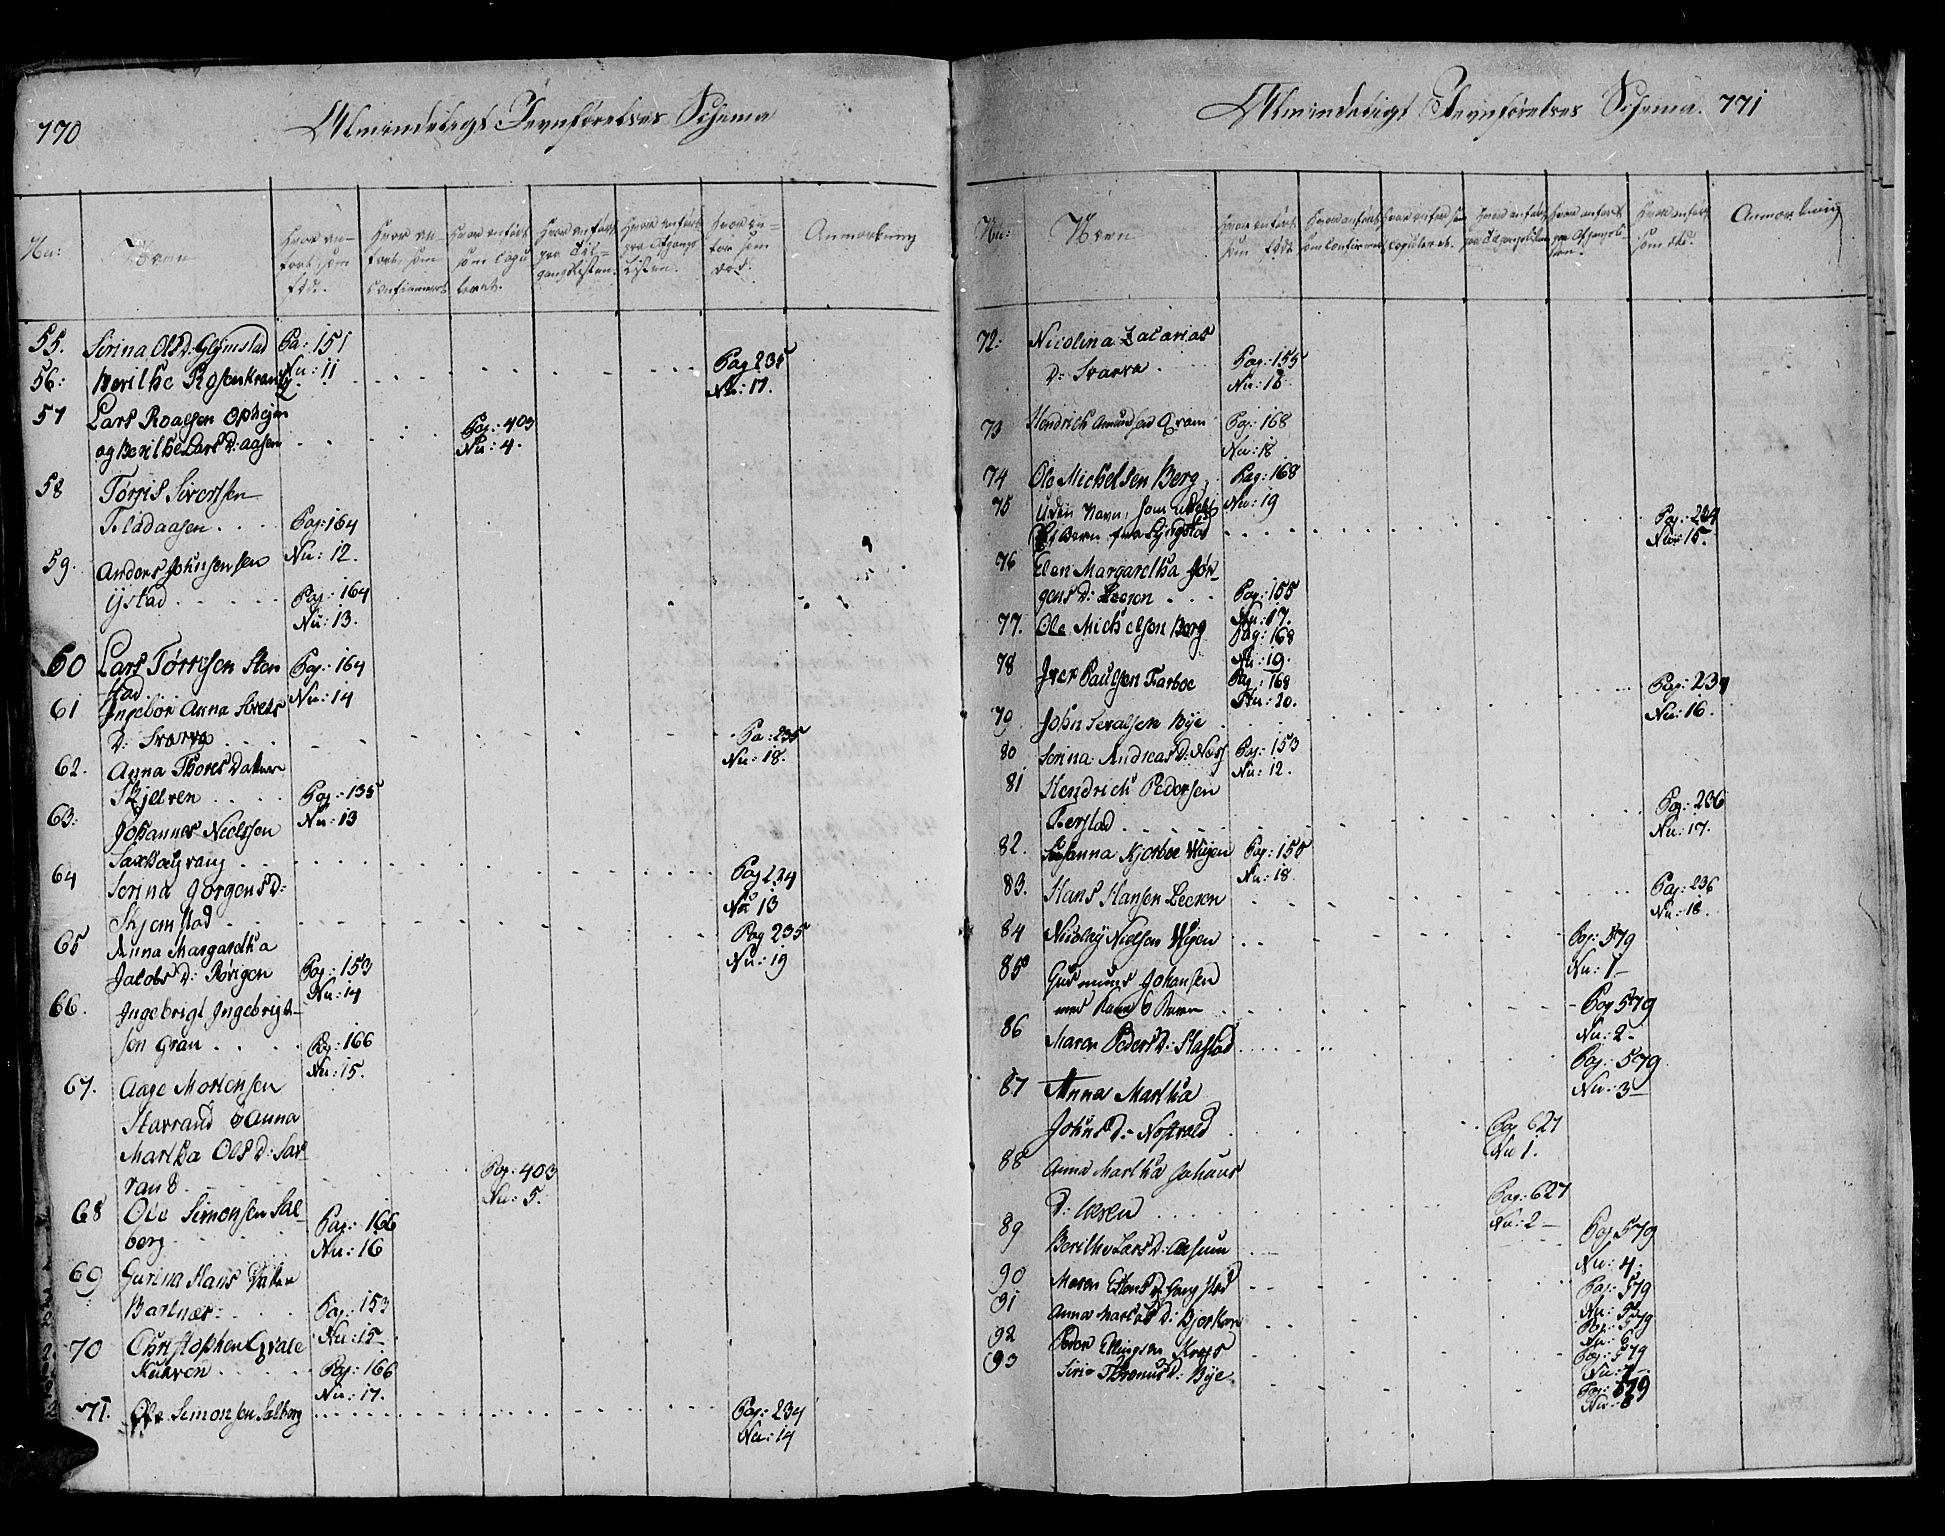 770
Almindeligt Jevnførelses Schema
Nu:
Navn
Hvor anført som fød.
Hvor anført som Confirmeret
Hvor anført som Copuleret.
Hvor anført paa Tilgangslisten.
Hvor anført paa Afgangs Listen.
Hvor anført som død.
Anmærkning
55. Serina OlsD: Glymstad Pa: 151
Nu: 11
56: Berithe Rosenkrantz Pag 235
Nu: 17.
57 Lars Roalsen Opheim
og Berithe LarsD: aasen Pag: 403
Nu: 4.
58 Tørris Sivertsen
Fladaasen Pag: 164
Nu: 12.
59. Anders Johnsensen
ystad Pag: 164
Nu: 13.
60 Lars Tørrisen Sten Pag: 164
stad Nu: 14
61 Ingebor Anna Sivers
D: Svarva Pa: 235
Nu: 18.
62. Anna Thores Datter
Skjelven Pag: 135
Nu: 13
63: Johannes Nielssen
Saxhaugvang Pag 234
Nu 13
64 Serina JørgensD:
Skjemstad Pag 235
Nu: 19
65 Anna Margaretha
Jacobs D: Rørigen Pag: 153
Nu: 14
66. Ingebrigt Ingebrigt-
sen Gran Pag: 166
Nu: 15.
67. Aage Mortensen
Starrand & Anna
Martha OlsD: Sar
rand Pag: 403
Nu: 5.
68 Ole Simonsen Sal-
berg Pag: 166
Nu: 16
69 Gurina Hans Datter
Bartnæs: Pag: 153
Nu: 15
70 Christopher Qvale
Kulvon Pag: 166
Nu: 17.
71. Ole Simonsen Salberg Pag: 234
Nu: 14
Almindeligt Jevnførelses Schema. 771
Nu:
Navn
Hvor anført som født
Hvor anført som Confirmeret
Hvor anført som copuleret.
Hvor anført paa Tilgangslisten
Hvor anført paa Afgangslisten.
Hvor anført som død.
Anmærkning
72: Nicolina Zacarias
D: Svarva Pag: 155
Nu: 16
73 Hendrich Amundsen Qvam Pag: 168
Nu: 18
74 Ole Michelsen Berg Pag: 168
Nu: 19
75 Uden Navn, som
Barn fra Pag: 234
Nu: 15.
76 Elen Margaretha Jør-
gens D: Leeren Pag: 155
Nu: 17.
77. Ole Michelsen Berg Pag: 168
Nu: 19.
78 Iver Paulsen Farboe Pag: 168
Nu: 20.
79 John Bye Pag: 234
Nu: 16.
80 Serina AndreasD: Næss Pag: 153
Nu: 12.
81 Hendrich Pedersen
Ferstad Pag: 236
Nu: 17.
82. Susanna Kjerboe Wigen Pag: 155
Nu: 18
83. Hans Hansen Leeren Pag: 236
Nu: 18.
84 Nicolay Nielsen Wigen Pag: 579
Nu: 1
85 Gudmund Johansen
med Kone 6 Børn Pag 579
Nu: 2
86 Maren PedersD: Hastad Pag: 579
Nu: 3
87 Anna Martha
JohnsD: Nossvald Pag 627
Nu 1.
88 Anna Martha Johans
D: Pag: 627
Nu: 2
89 Berithe LarsD: Pag 579
Nu: 4.
90 Maren Pag: 579
Nu: 5
91 Anna D: Pag: 579
Nu: 6
92 Peder Ellingsen Pag: 579
Nu: 7
93 Siri D: Bye Pag: 579
Nu: 8